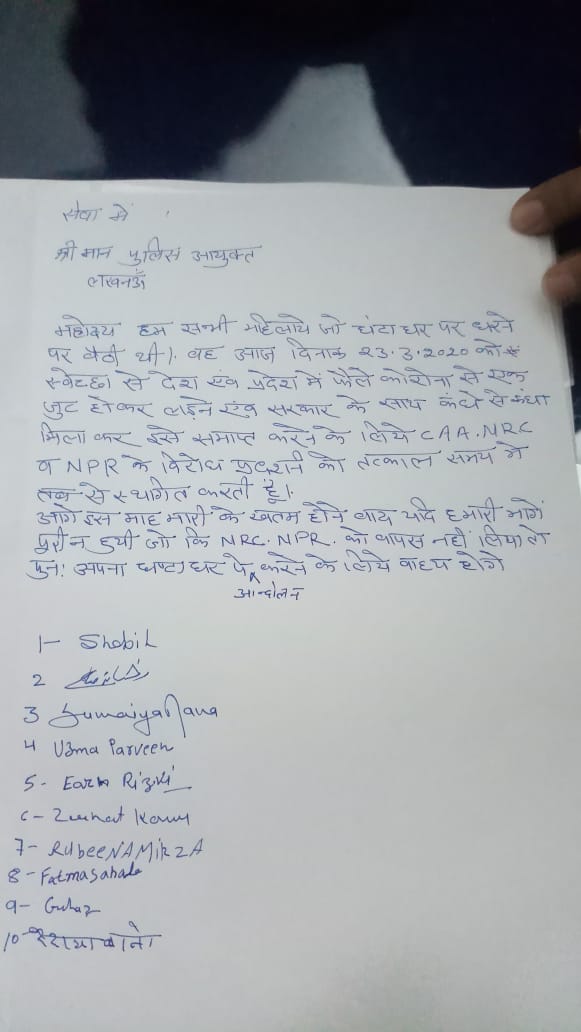 सेवा में ,
श्री मान पुलिस आयुक्त
लखनऊँ
महोदय हम सभी महिलाये जो घंटा घर पर धरने
पर बैठी थी। वह आज दिनाक 23.3.2020 को
स्वेच्छा से देश एंव प्रदेश में फैले कोरोना से एक
जुट होकर लड़ने एंव सरकार के साथ कंधे से कंधा
मिला कर इसे समाप्त करने के लिये CAA.NRC
व NPR के विरोध प्रदर्शन को तत्काल समय मे
से स्थागित करती हूँ।
आगे इस माहामारी के खतम होने बाद यदि हमारी मांगे
पूरी न हुयी जो कि NRC.NPR. को वापस नही लिया तो
पुनः अपना घण्टा घर पे आन्दोलन करने के लिये वाध्य होगे
1- Shabih
2
3 Sumaiya Rana
4 Uzma Parveen
5- Rizvi
6- Zeenat
7- RubeeNA MiRZA
8- Fatma
9-
10- बानो